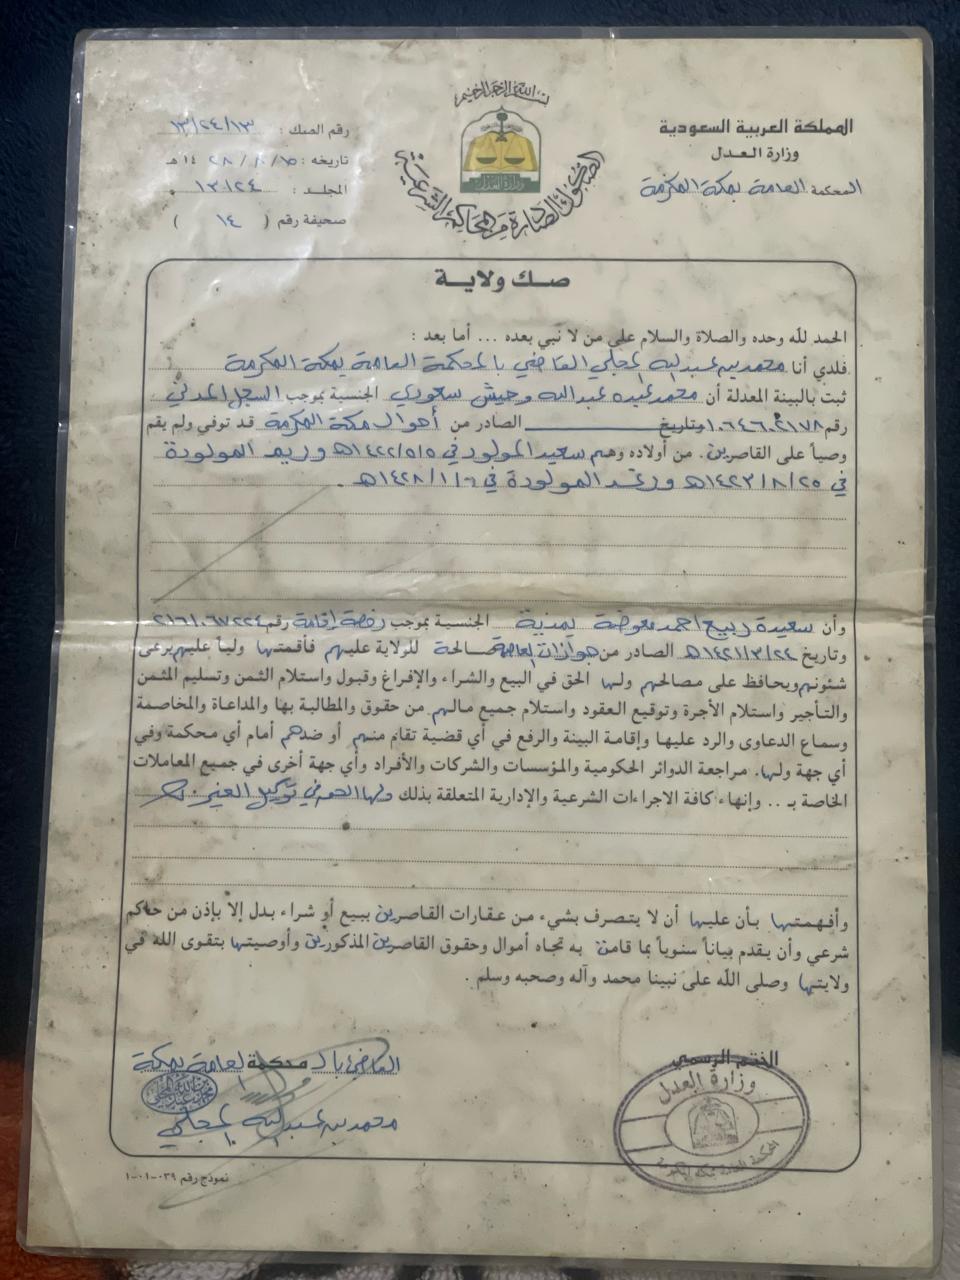 بسم الله الرحمن الرحيم
المملكة العربية السعودية
وزارة العدل
المحكمة العامة بمكة المكرمة
وزارة العدل
الصكوك الصادرة من المحاكم الشرعية
رقم الصك : ١٣/٢٤/١٣
تاريخه : ١٥ / ٨ / ١٤٢٨ هـ
المجلد : ١٣/٢٤
صحيفة رقم ( ١٤ )
صك ولاية
الحمد لله وحده والصلاة والسلام على من لا نبي بعده ... أما بعد :
فلدي أنا محمد بن عبدالله المجلي القاضي بالمحكمة العامة بمكة المكرمة
ثبت بالبينة المعدلة أن محمد عبده عبدالله وحيش سعودي الجنسية بموجب السجل المدني
رقم وتاريخ الصادر من أحوال مكة المكرمة قد توفي ولم يقم
وصياً على القاصرين. من أولاده وهم سعيد المولود في ١٤٢٢/٥/٥هـ وريم المولودة
في ١٤٢٣/٨/٢٥هـ ورغد المولودة في هـ .
وأن سعيدة ربيع احمد معوضة يمنية الجنسية بموجب رخصة إقامة رقم ٢١٦١٠٦٧٢٢٤
وتاريخ ١٤٢١/٣/٢٤هـ الصادر من جوازات العاصمة صالحة للولاية عليهم فأقمتها ولياً عليهم يرعى
شئونهم ويحافظ على مصالحهم ولها الحق في البيع والشراء والإفراغ وقبول واستلام الثمن وتسليم المثمن
والتأجير واستلام الأجرة وتوقيع العقود واستلام جميع مالهم من حقوق والمطالبة بها والمداعاة والمخاصمة
وسماع الدعاوى والرد عليها وإقامة البينة والرفع في أي قضية تقام منهم أو ضدهم أمام أي محكمة وفي
أي جهة ولها. مراجعة الدوائر الحكومية والمؤسسات والشركات والأفراد وأي جهة أخرى في جميع المعاملات
الخاصة بـ .. وإنهاء كافة الاجراءات الشرعية والإدارية المتعلقة بذلك ولها الحق في توكيل الغير .
وأفهمتها بأن عليها أن لا يتصرف بشيء من عقارات القاصرين ببيع أو شراء بدل إلاّ بإذن من حاكم
شرعي وأن يقدم بياناً سنوياً بما قامت به تجاه أموال وحقوق القاصرين المذكورين وأوصيتها بتقوى الله في
ولايتها وصلى الله على نبينا محمد وآله وصحبه وسلم .
الختم الرسمي
وزارة العدل
القاضي بالـ محكمة العامة بمكة
محمد بن عبدالله المجلي
نموذج رقم ٠٣٩-٠١-١